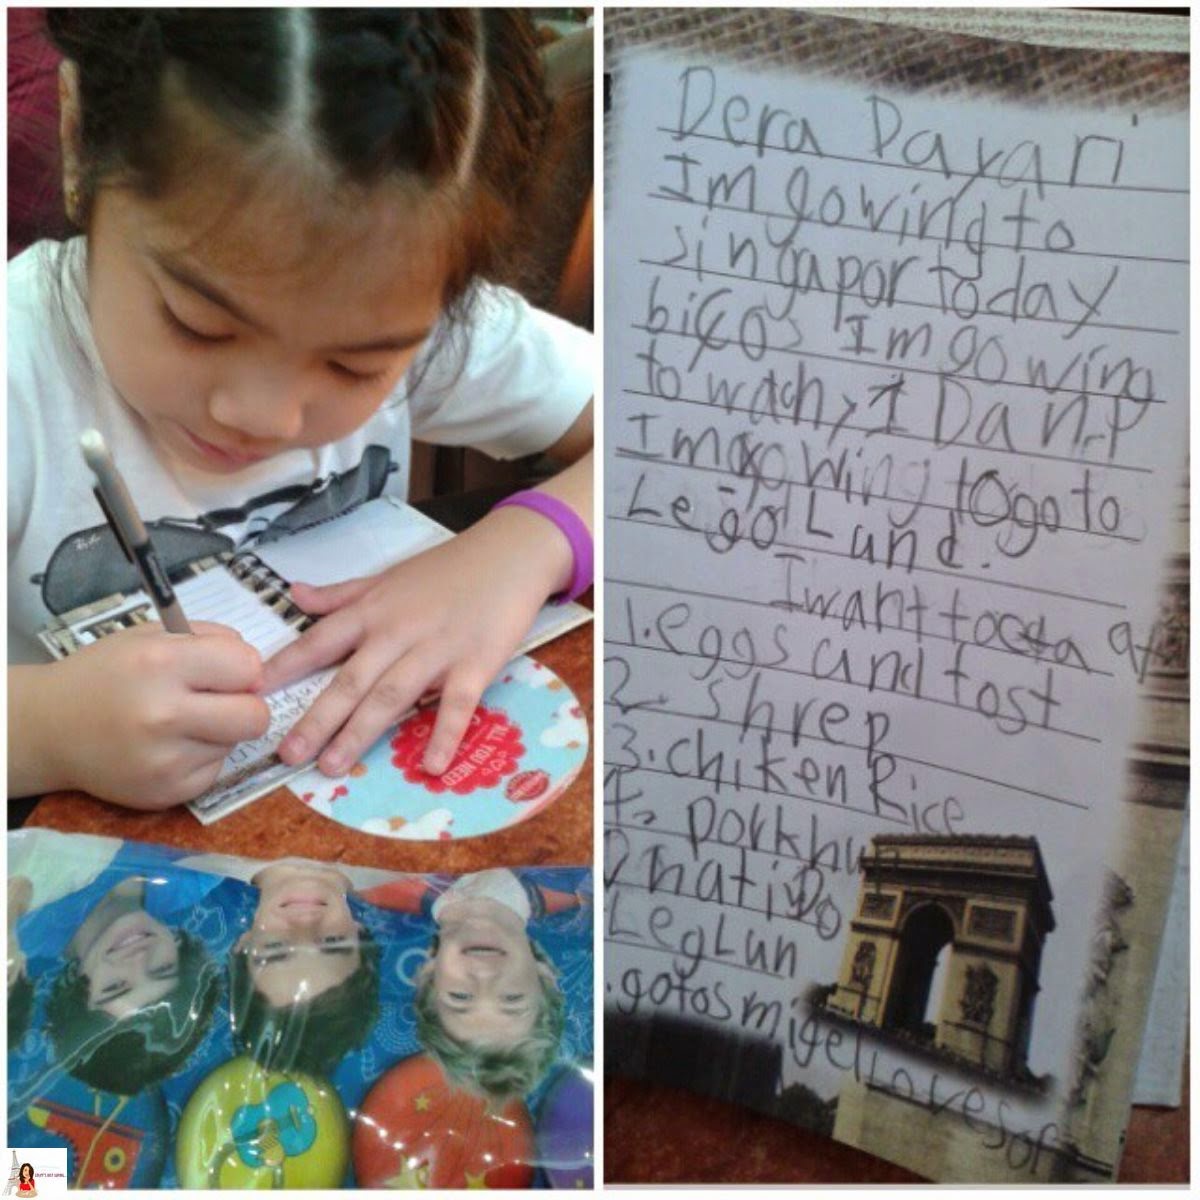 Dera Dayari
Im gowing to
singapor today
bicos Im gowing
to wach, 1 Dan.P
Im gowing to go to
Lego Land.
I want to eta at
1. eggs and tost
2. shrep
3. chiken Rice
porkhun
LegLun
. gotosmigel Loves
ALL YOU NEED